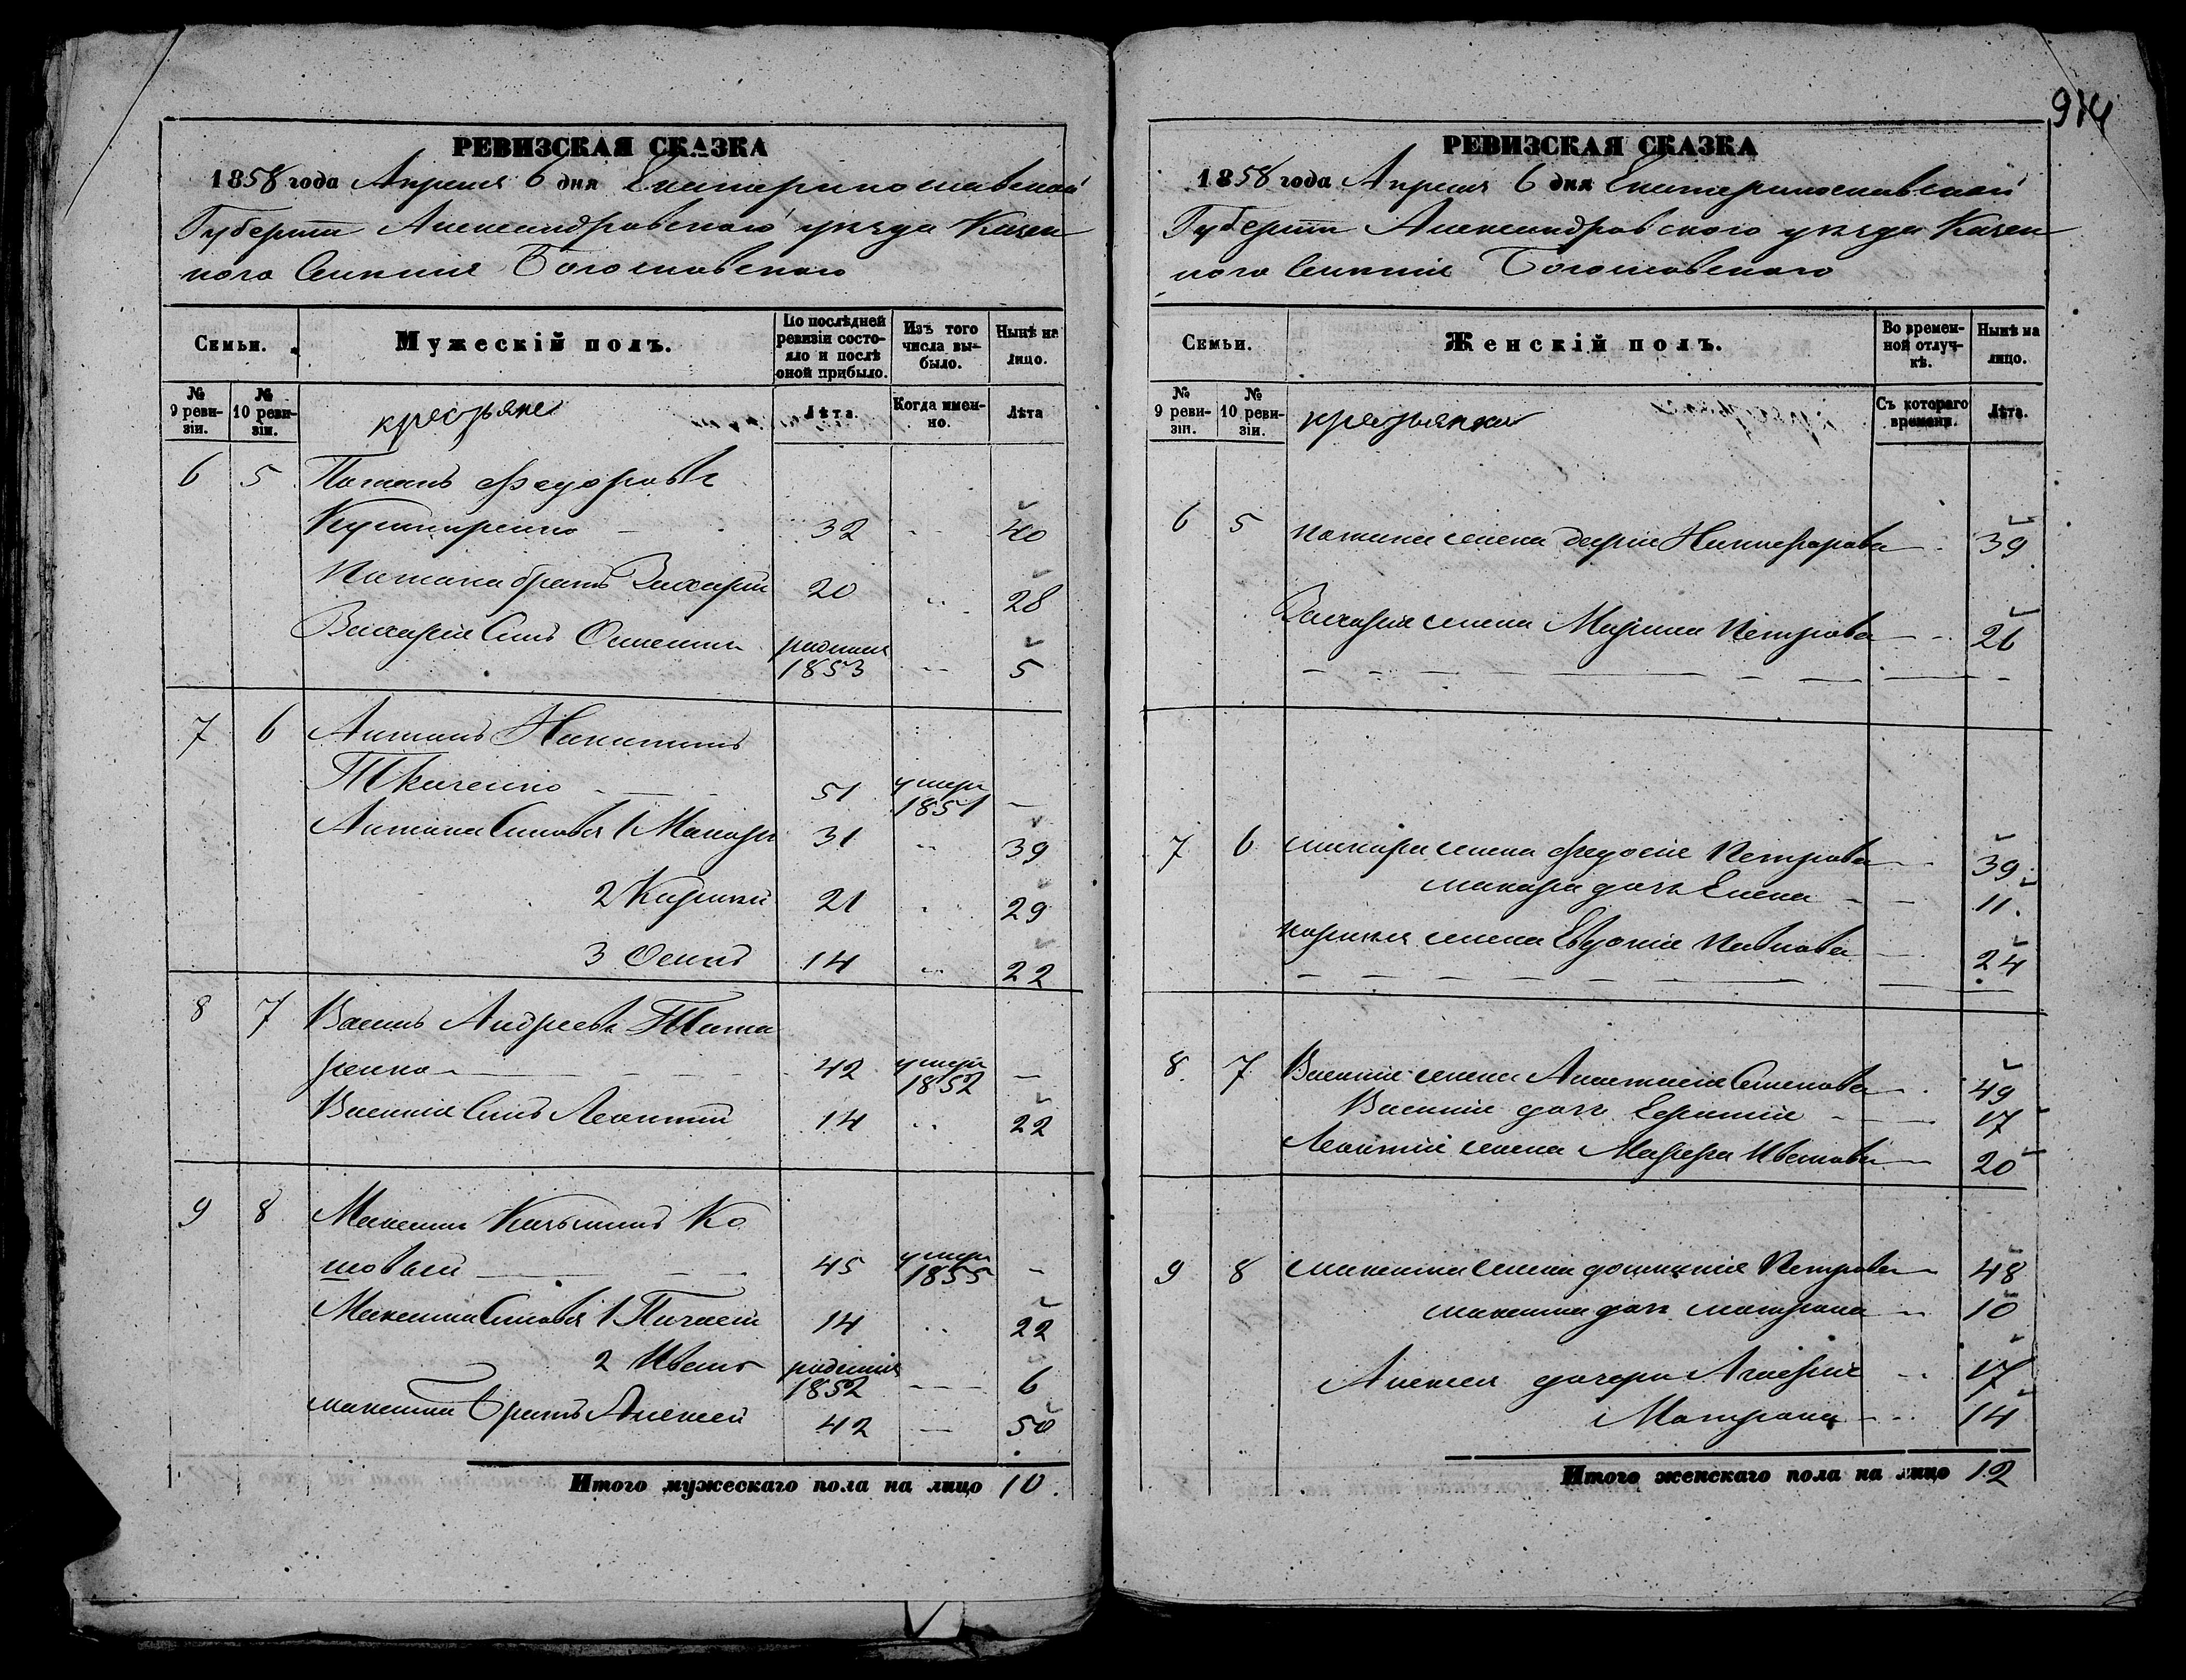 914
РЕВИЗСКАЯ СКАЗКА
1858 года Апреля 6 дня Екатеринославской
Губернии Александровского уезда Казен
ного Селения Богословского
Семьи.
Мужескій полъ.
По послѣдней ревизіи состояло и послѣ оной прибыло.
Изъ того числа выбыло.
Нынѣ на лицо.
№ 9 ревизіи.
№ 10 ревизіи.
крестьяне
Лѣта.
Когда именно.
Лѣта
6 5 Потапъ Федоровъ
Кушниренко 32 40
Потапа братъ Захарій 20 28
Захарія Сынъ родился 1853 5
7 6 Антонъ Никитинъ
Ткаченко 51 умеръ 1851 —
Антона Сыновья 1 Макаръ 31 39
2 Кирилъ 21 29
3 Осипъ 14 22
8 7 Василь Андреевъ Тита
ренко 42 умеръ 1852 —
Василія Сынъ Леонтій 14 22
9 8 Максимъ Кузьминъ Ко
шовый 45 умеръ 1855 —
Максима Сыновья 1 14 22
2 Иванъ родился 1852 6
Максима Братъ Алексей 42 50
Итого мужескаго пола на лицо 10.
РЕВИЗСКАЯ СКАЗКА
1858 года Апреля 6 дня Екатеринославской
Губернии Александровского уезда Казен
ного Селения Богословского
Семьи.
Женскій полъ.
Во временной отлучкѣ.
Нынѣ на лицо.
№ 9 ревизіи.
№ 10 ревизіи.
крестьянки
Съ котораго времени.
Лѣта.
6 5 Потапа жена Дарія Никифорова 39
Захарія жена Марина Петрова 26
7 6 Макара жена Федосія Петрова 39
Макара дочь Елена 11
Кирила жена Евдокія Павлова 24
8 7 Василія жена Анастасія Семенова 49
Василія дочь 17
Леонтія жена Марфа Иванова 20
9 8 Максима жена Домникія Петрова 48
Максима дочь Матрона 10
Алексея дочери Агафія 17
Матрона 14
Итого женскаго пола на лицо 12